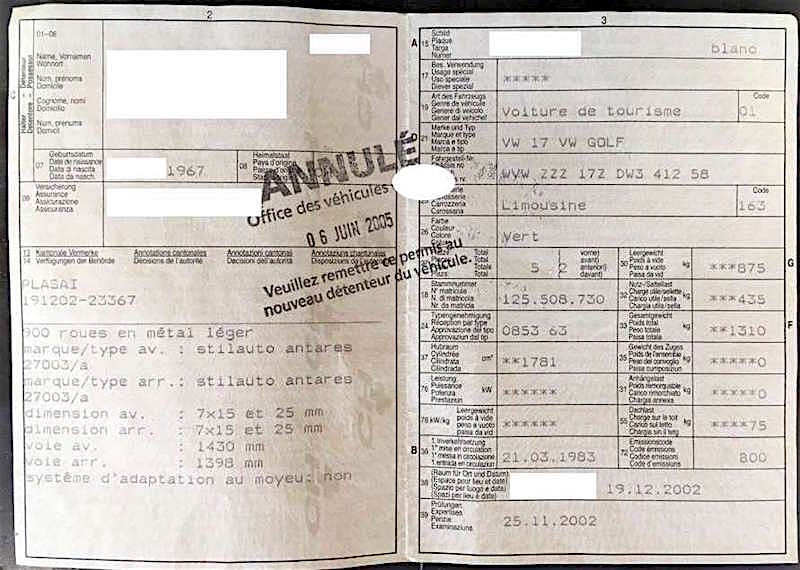 2
01-06
Name, Vornamen
Wohnort
Nom, prénoms
Domicile
Cognome, nomi
Domicilio
Num, prenums
Domicil
07 Geburtsdatum
Date de naissance
Data di nascita
Data da nasch.
1967
08 Heimatstaat
09 Versicherung
Assurance
Assicurazione
Assicuranza
ANNULÉ
Office des véhicules
06 JUIN 2005
Veuillez remettre ce permis au
nouveau détenteur du véhicule.
13 Kantonale Vermerke Annotations cantonales Annotazioni cantonali Annotaziuns chantunalas
14 Verfügungen der Behörde Décisions de l'autorité Decisioni dell'autorità
PLASAI
191202-23367
900 roues en métal léger
marque/type av. : stilauto antares
27003/a
marque/type arr.: stilauto antares
27003/a
dimension av. : 7x15 et 25 mm
dimension arr. : 7x15 et 25 mm
voie av. : 1430 mm
voie arr. : 1398 mm
système d'adaptation au moyeu: non
3
A 15 Schild
Plaque
Targa
Numer
blanc
17 Bes. Verwendung
Usage spécial
Uso speciale
Diever spezial
*****
19 Art des Fahrzeugs
Genre de véhicule
Genere di veicolo
Gener dal vehichel
Voiture de tourisme
Code
01
D 21 Marke und Typ
Marque et type
Marca e tipo
Marca e tip
VW 17 VW GOLF
Fahrgestell-Nr.
WVW ZZZ 17Z DW3 412 58
Carrosserie
Carrozzeria
Carossaria
Limousine
Code
163
26 Farbe
Couleur
Colore
Vert
Plätze Total
Total
Totale
Total
5
vorne)
avant)
anteriori)
davant)
2
30 Leergewicht
Poids à vide
Peso a vuoto
Paisa da vid
kg
***875
G
18 Stammnummer
N° matricule
N. di matricola
Nr. da matricla
125.508.730
32 Nutz-/Sattellast
Charge utile/sellette
Carico utile/sella
Chargia utila/sella
kg
***435
24 Typengenehmigung
Réception par type
Approvazione del tipo
Approvaziun dal tip
0853 63
33 Gesamtgewicht
Poids total
Peso totale
Paisa totala
kg
**1310
F
37 Hubraum
Cylindrée
Cilindrata
Cilindrada
cm³
**1781
35 Gewicht des Zuges
Poids de l'ensemble
Peso del convoglio
Paisa cumposiziun
kg
*****0
76 Leistung
Puissance
Potenza
Prestaziun
kW
******
31 Anhängelast
Poids remorquable
Carico rimorchiato
Chargia annexa
kg
*****0
78 kW/kg
Leergewicht
poids à vide
peso a vuoto
paisa da vid
******
55 Dachlast
Charge sur le toit
Carico sul tetto
Chargia sin il tetg
kg
****75
B 36 1. Inverkehrsetzung
1re mise en circulation
1a messa in circolazione
1. entrada en circulaziun
21.03.1983
72 Emissionscode
Code émissions
Codice emissioni
Code d'emissiuns
B00
38 (Raum für Ort und Datum)
(Espace pour lieu et date)
(Spazio per luogo e data)
(Spazi per lieu e date)
19.12.2002
39 Prüfungen
Expertises
Perizie
Examinaziuns
25.11.2002